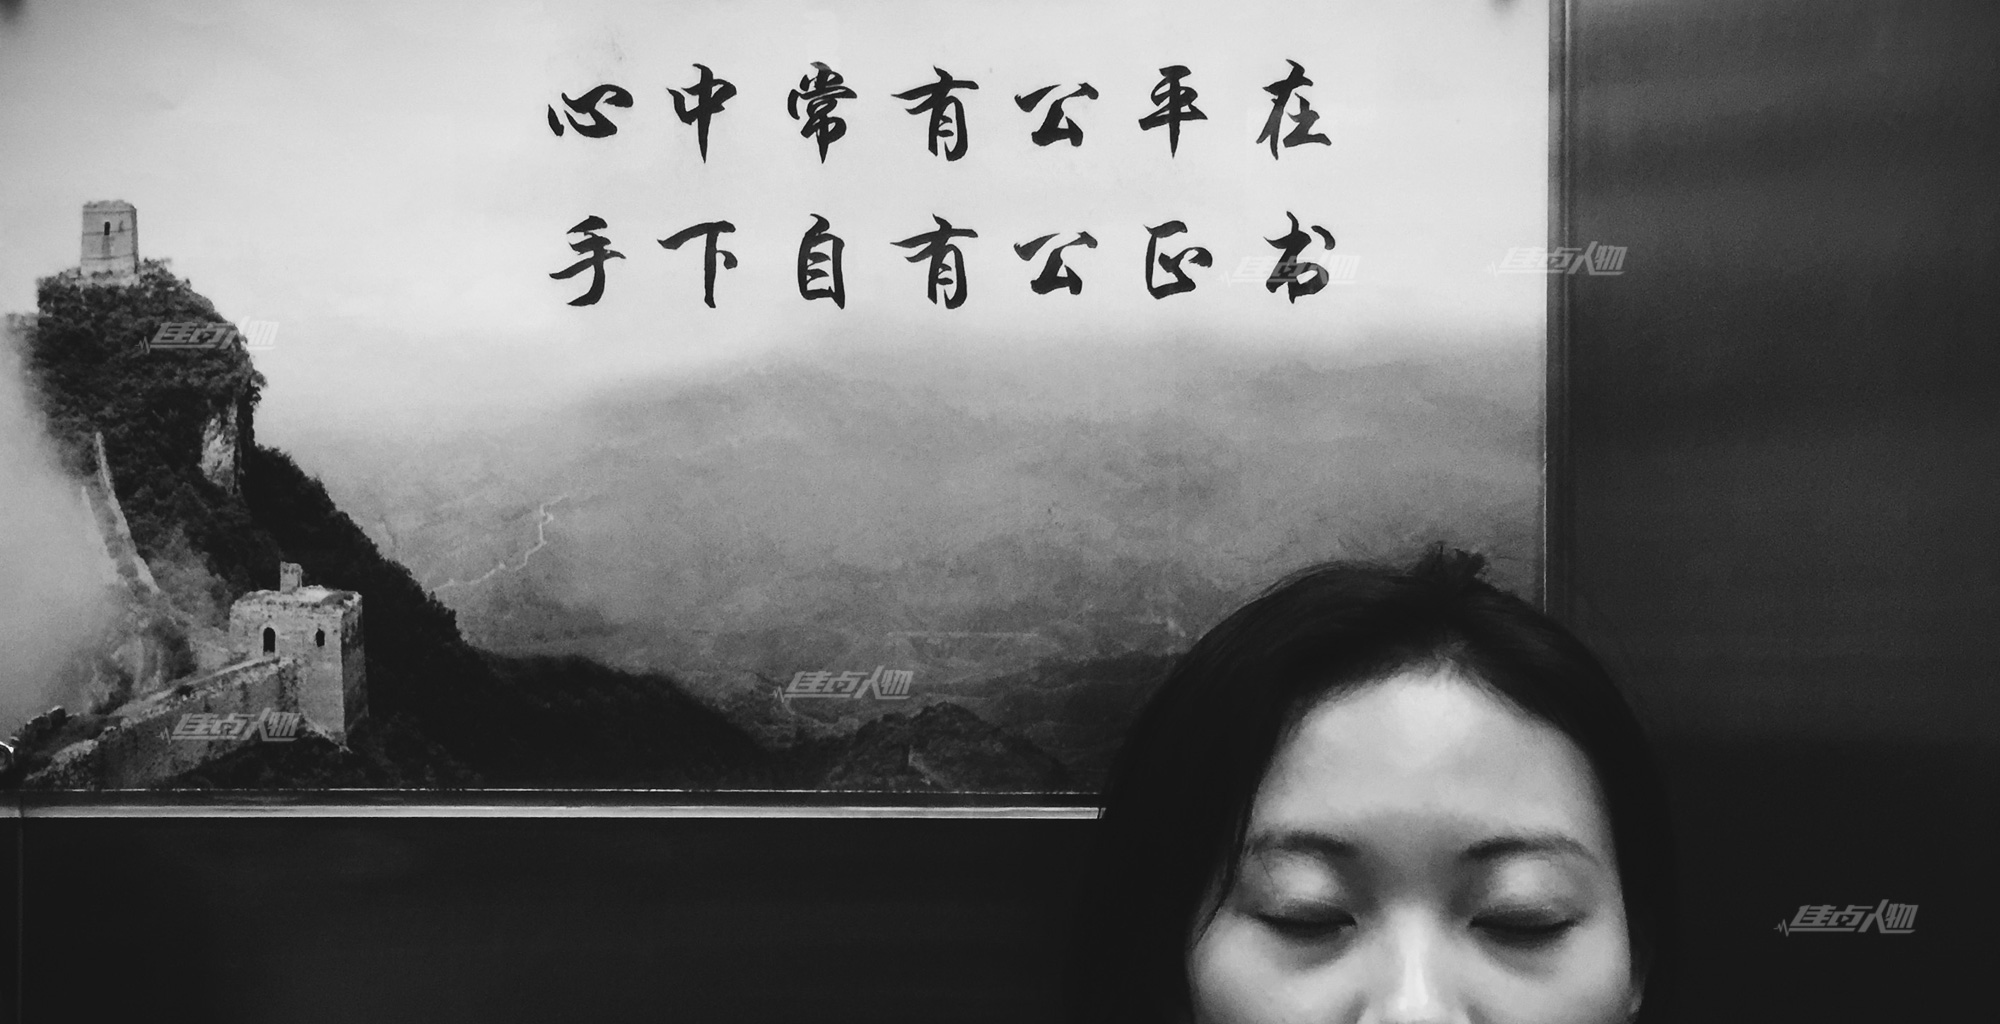 心中常有公平在
手下自有公正书
佳点人物
佳点人物
佳点人物
佳点人物
佳点人物
佳点人物